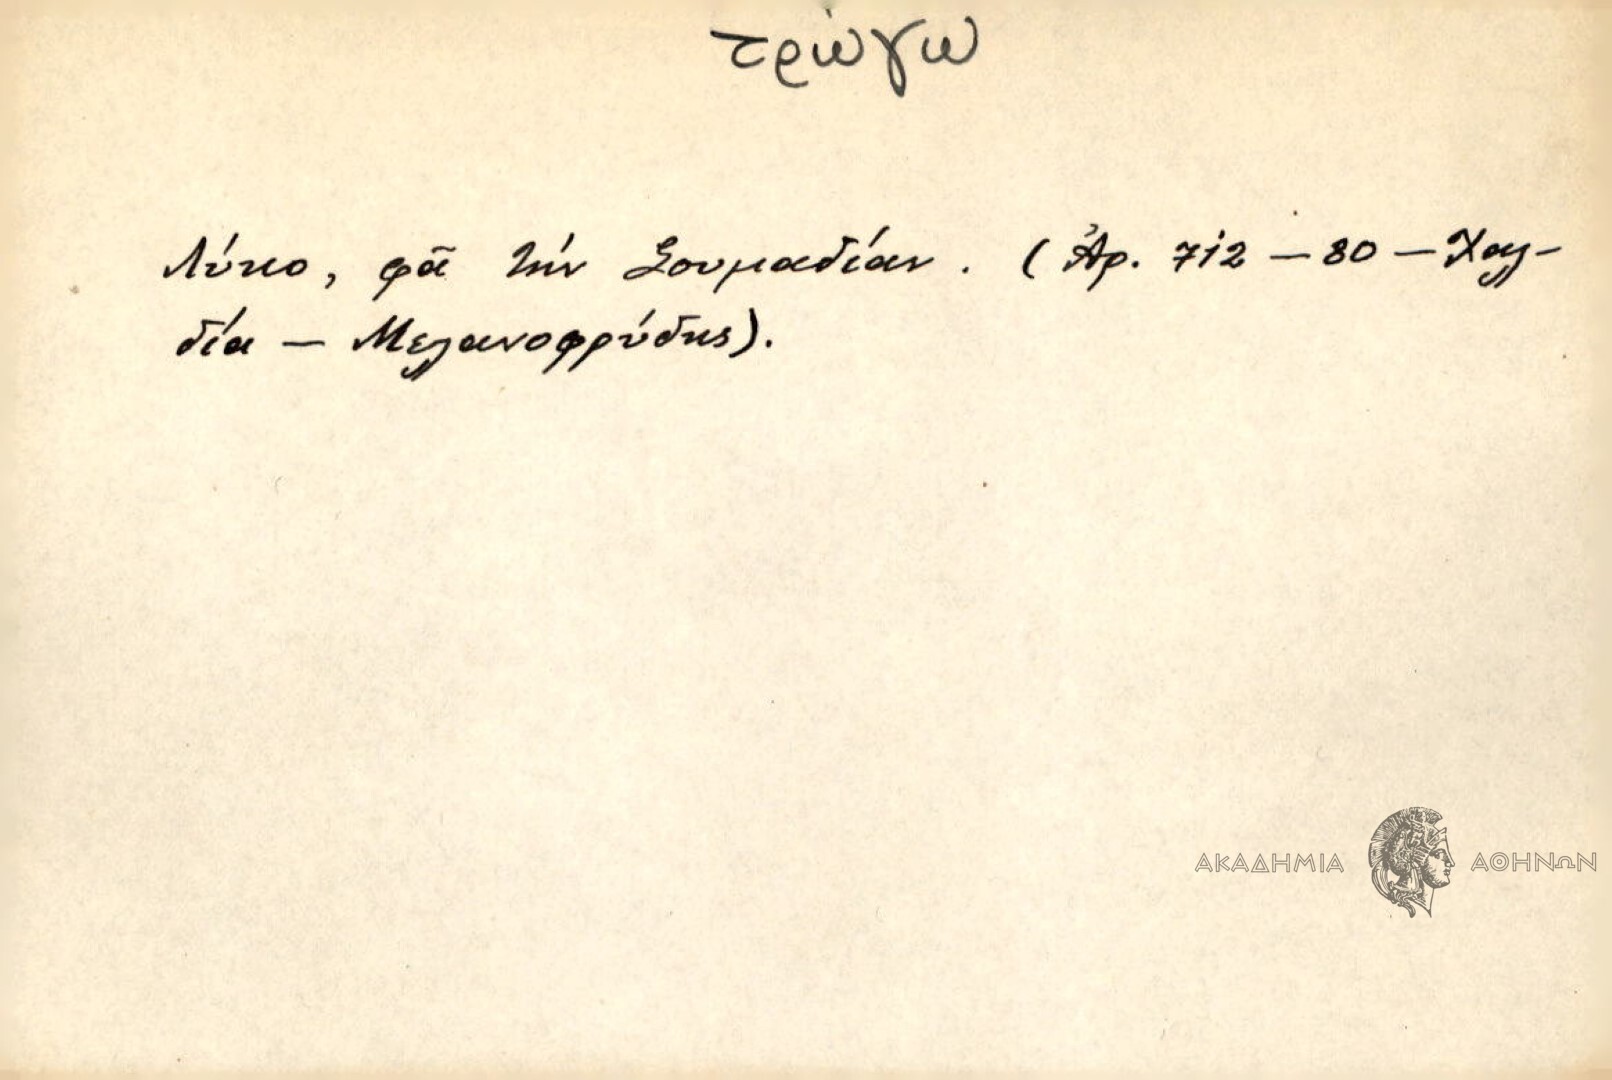 τρώγω
Λύκο, φᾶ τὴν ζουμαδίαν. (Ἀρ. 712 – 80 – Χαλ-
δία – Μελανοφρύδης).
ΑΚΑΔΗΜΙΑ ΑΘΗΝΩΝ